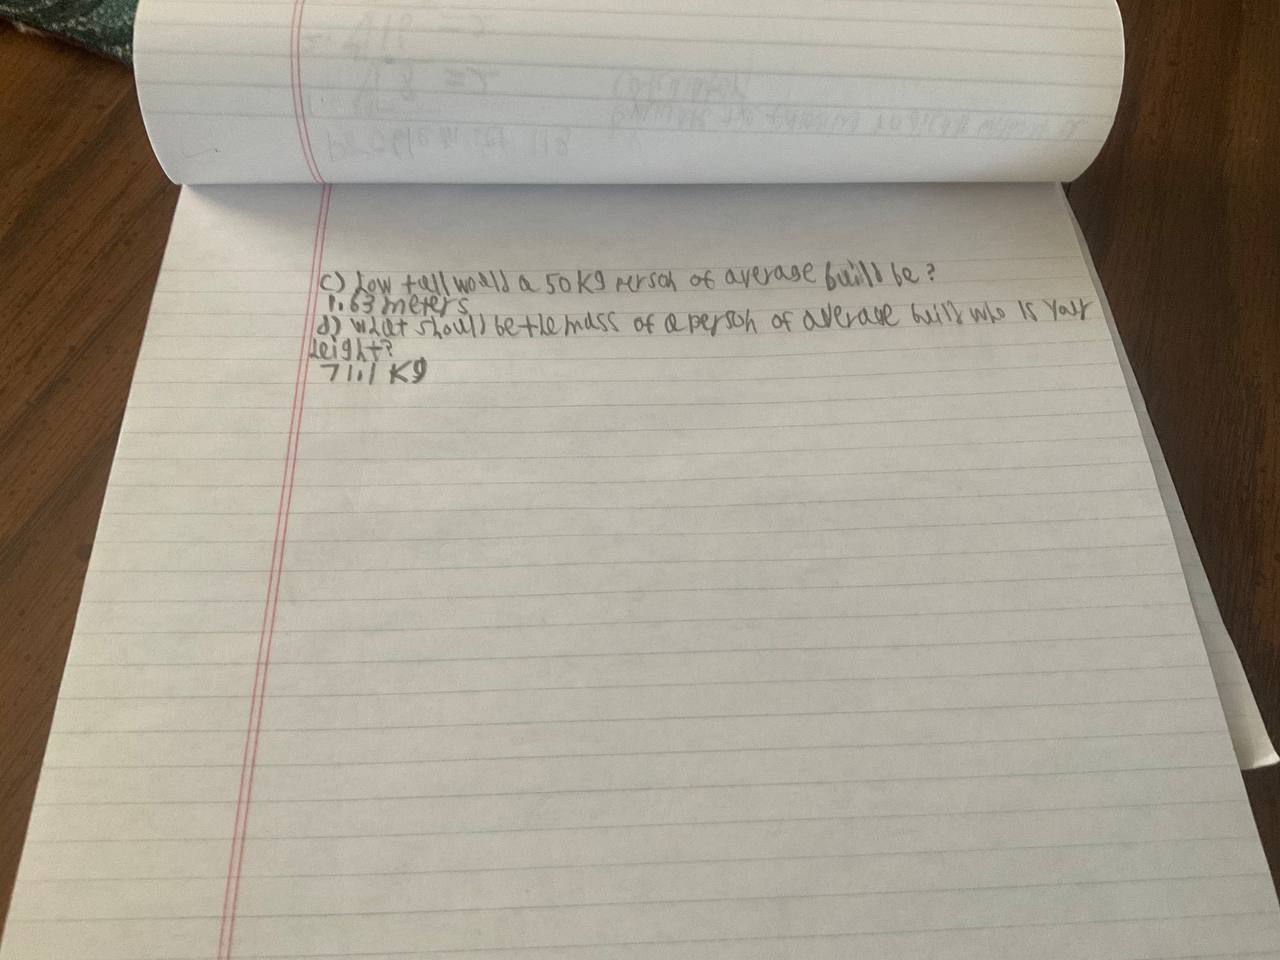 c) how tall would a 50 kg person of average build be?
1.63 meters
d) what should be the mass of a person of average build who is your
height?
71.1 kg